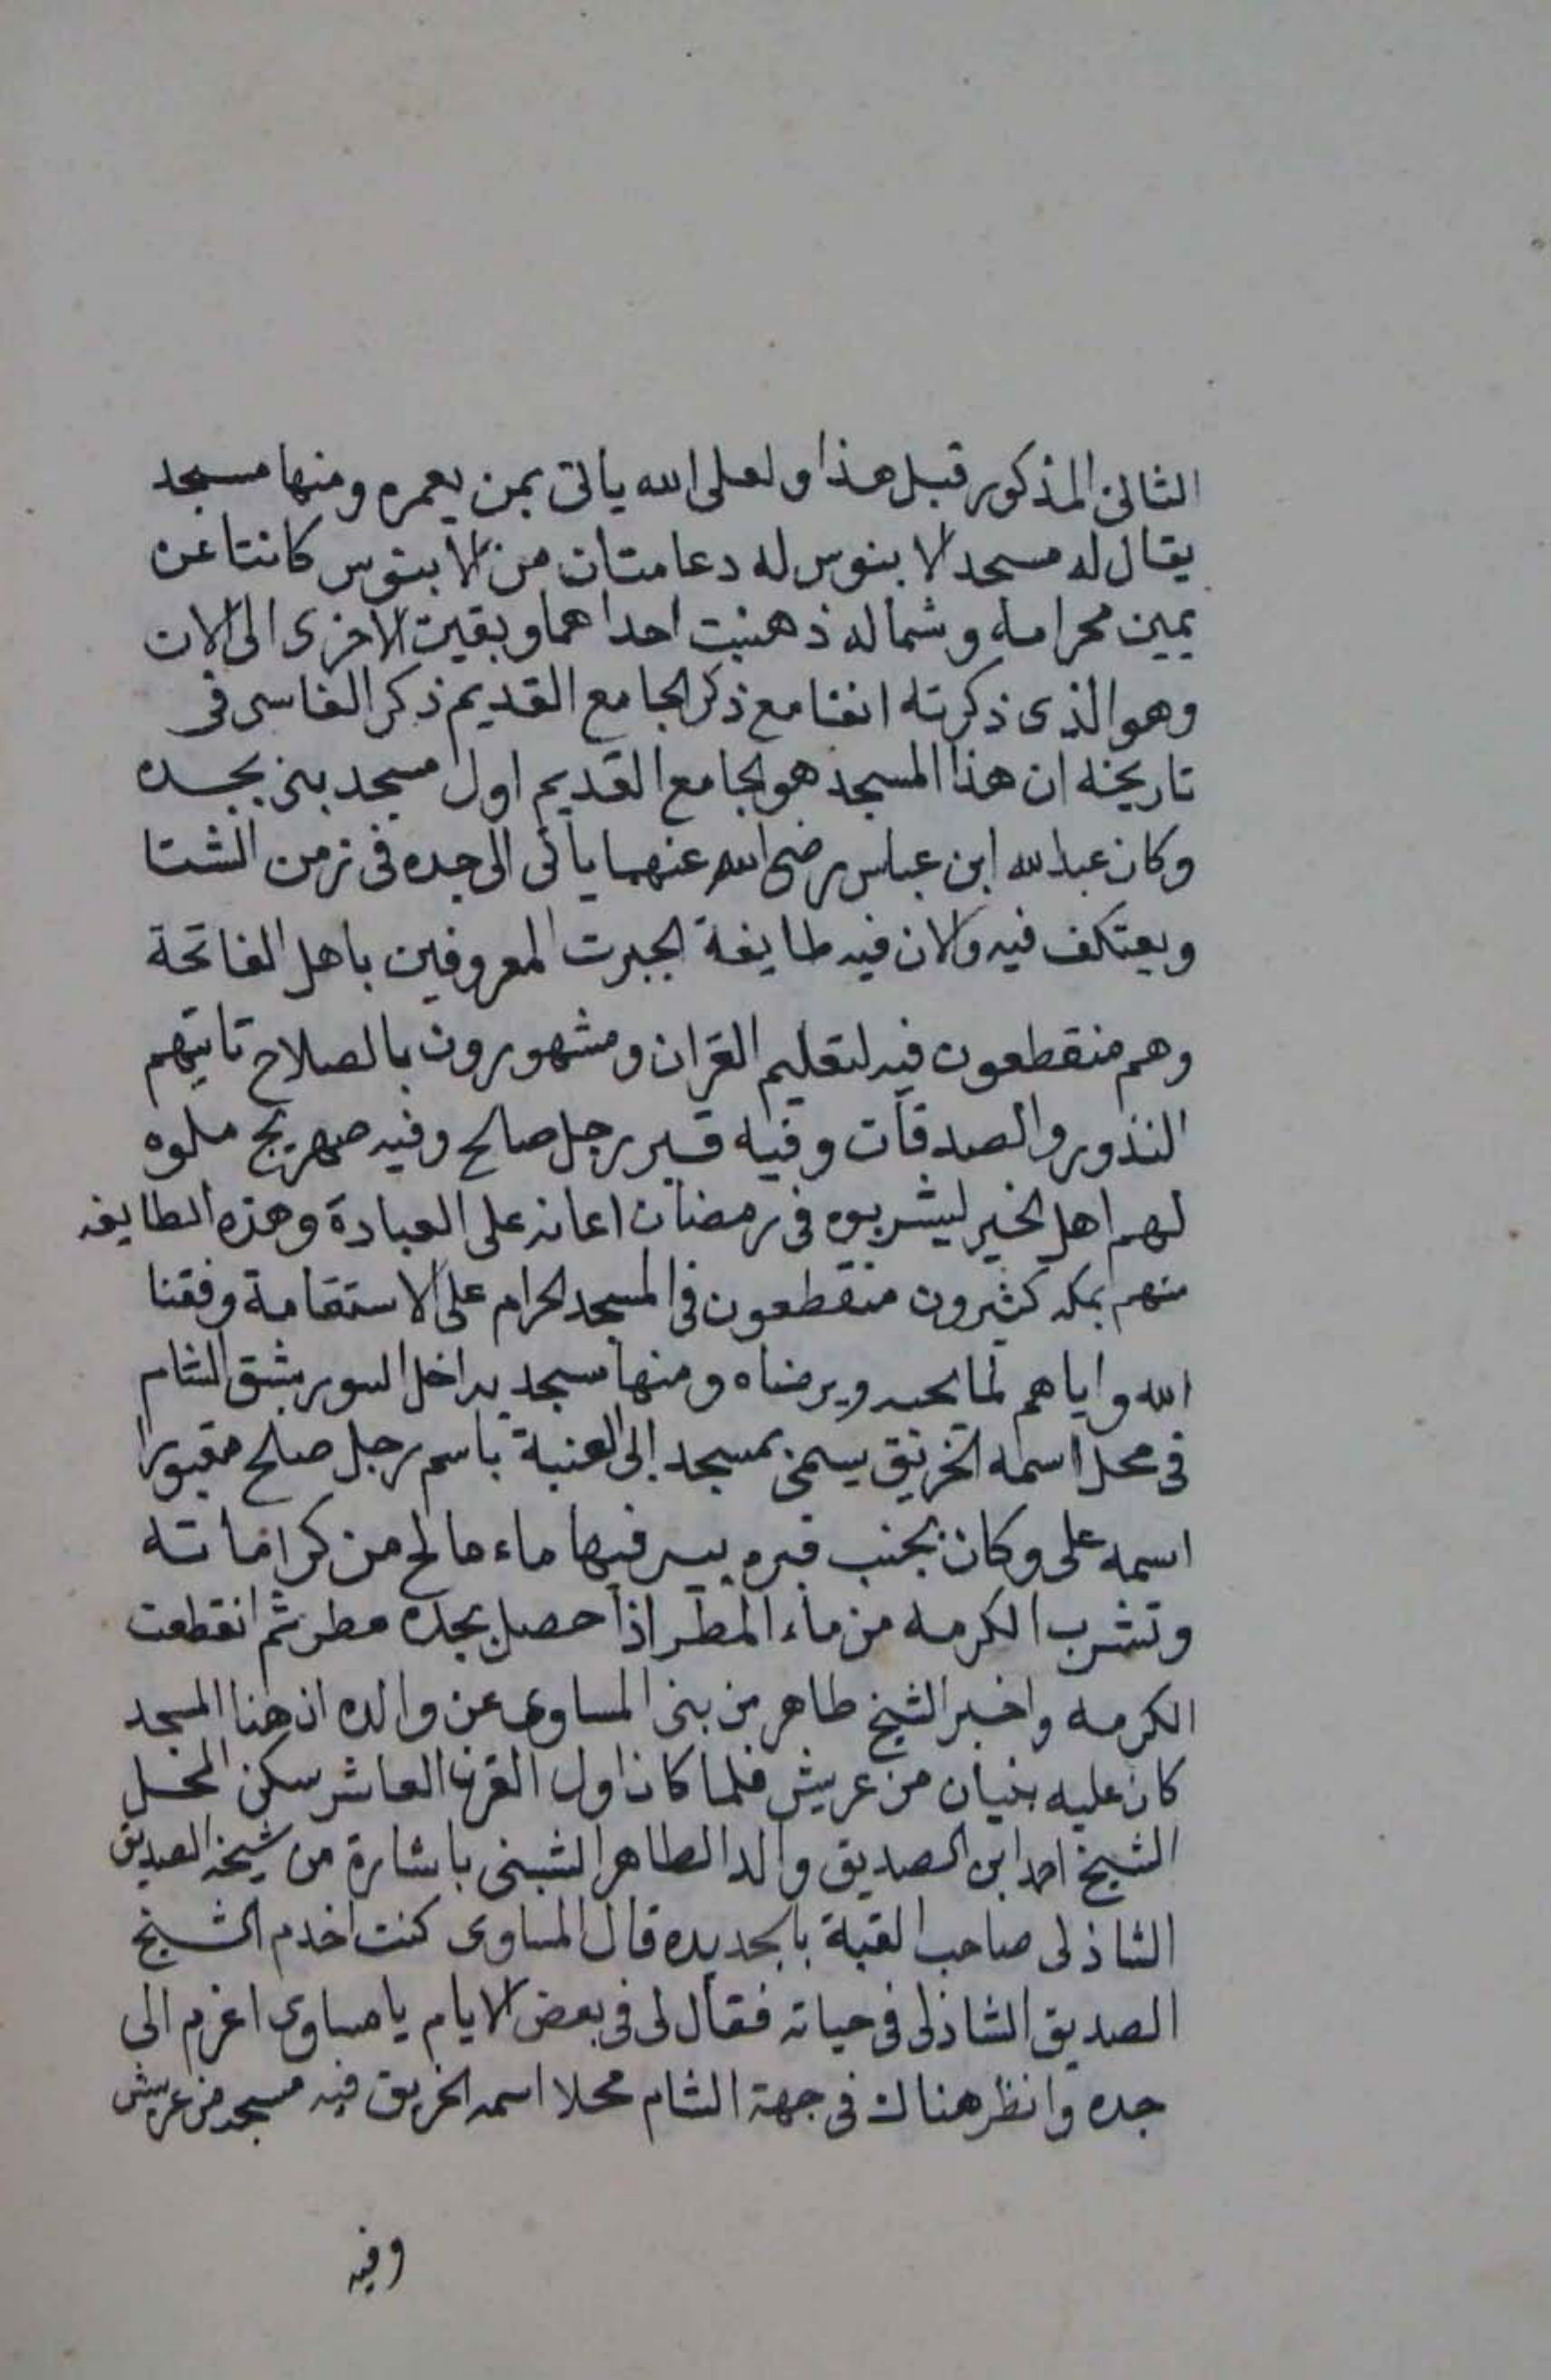 الثانى المذكور قبل هذا ولعلى الله ياتى بمن يعمره ومنها مسجد
يقال له مسجد الابنوس له دعامتان من الابنوس كانتا عن
يمين محرابه وشماله ذهبت احداهما وبقيت الاخرى الى الان
وهو الذى ذكرته انفا مع ذكر الجامع القديم ذكر الفاسى فى
تاريخه ان هذا المسجد هو الجامع القديم اول مسجد بنى بجده
وكان عبدالله ابن عباس رضى الله عنهما ياتى الى جده فى زمن الشتا
ويعتكف فيه والان فيه طايفة الجبرت المعروفين باهل الفاتحة
وهم منقطعون فيه لتعليم القران ومشهورون بالصلاح تاتيهم
النذور والصدقات وفيه قبر رجل صالح وفيه صهريج ملوه
لهم اهل الخير ليشربوه فى رمضان اعانه على العبادة وهذه الطايفه
منهم بمكه كثيرون منقطعون فى المسجد الحرام على الاستقامة وفقنا
الله واياهم لما يحبه ويرضاه ومنها مسجد بداخل السور بشق الشام
فى محل اسمه الخريق يسمى بمسجد ابى العنبة باسم رجل صالح مقبورا
اسمه على وكان بجنب قبره بير فيها ماء مالح من كراماته
وتشرب الكرمه من ماء المطر اذا حصل بجده مطر ثم انقطعت
الكرمه واخبر الشيخ طاهر بن بنى المساوى عن والده ان هذا المسجد
كان عليه بنيان من عريش فلما كان اول القرن العاشر سكن المحل
الشيخ احمد ابن الصديق والد الطاهر باشارة من شيخه الصديق
الشاذلى صاحب القبة بالحديده قال المساوى كنت اخدم الشيخ
الصديق الشاذلى فى حياته فقال لى فى بعض الايام يا مساوى اعزم الى
جده وانظر هناك فى جهة الشام محلا اسمه الخريق فيه مسجد من عريش
وفيه